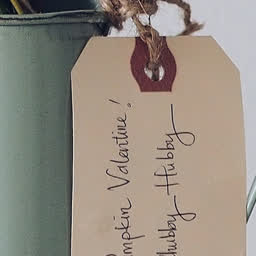 Pumpkin Valentine!
hubby Hubby